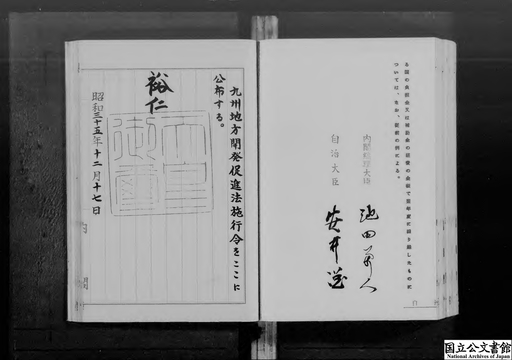 る国の負担金又は補助金の後の負担で翌年度に繰り越したものに
ついては、なお、従前の例による。
内閣総理大臣
池田勇人
自治大臣
安井謙
九州地方開発促進法施行令をここに
公布する。
裕仁
天皇御璽
昭和三十五年十二月十七日
国立公文書館
National Archives of Japan